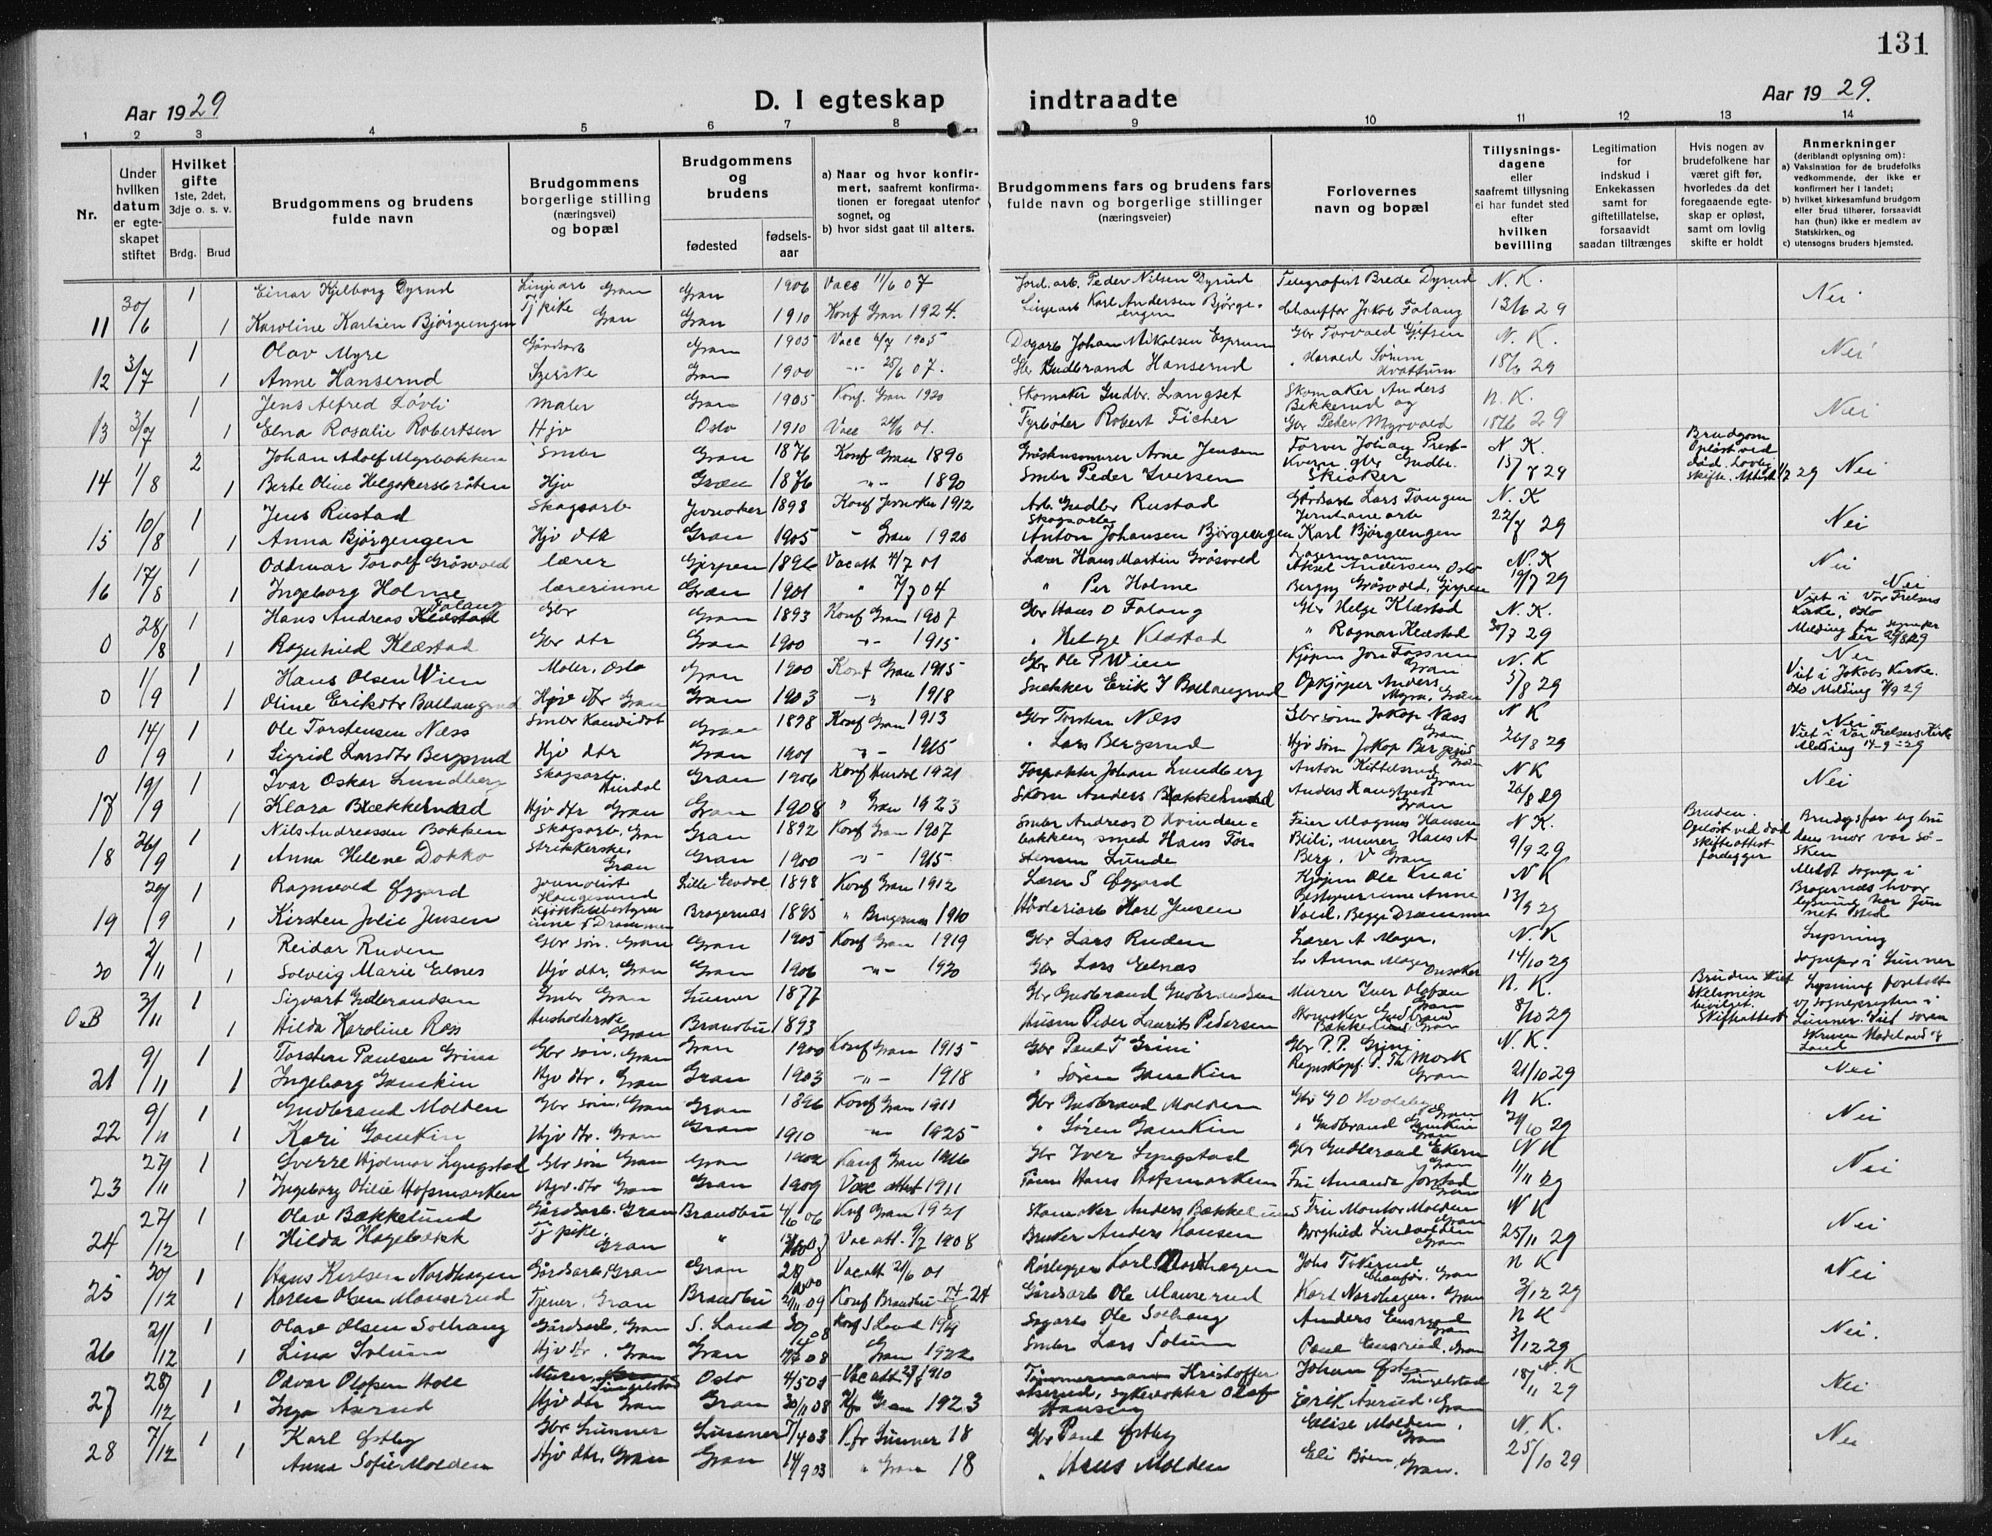 131
Aar 1929
D. I egteskap indtraadte
Aar 1929.
1 2 3 4 5 6 7 8 9 10 11 12 13 14
Nr.
Under hvilken datum er egteskapet stiftet
Hvilket gifte 1ste, 2det, 3dje o. s. v.
Brdg. Brud
Brudgommens og brudens fulde navn
Brudgommens borgerlige stilling (næringsvei) og bopæl
Brudgommens og brudens
fødested fødselsaar
a) Naar og hvor konfirmert, saafremt konfirmationen er foregaat utenfor sognet, og
b) hvor sidst gaat til alters.
Brudgommens fars og brudens fars fulde navn og borgerlige stillinger (næringsveier)
Forlovernes navn og bopæl
Tillysningsdagene eller saafremt tillysning ei har fundet sted efter hvilken bevilling
Legitimation for indskud i Enkekassen samt for giftetillatelse, forsaavidt saadan tiltrænges
Hvis nogen av brudefolkene har været gift før, hvorledes da det foregaaende egteskap er opløst, samt om lovlig skifte er holdt
Anmerkninger (deriblandt oplysning om):
a) Vaksination for de brudefolks vedkommende, der ikke er konfirmert her i landet;
b) hvilket kirkesamfund brudgom eller brud tilhører, forsaavidt han (hun) ikke er medlem av Statskirken, og
c) utensogns bruders hjemsted.
1 Einar Kjelborg Dyrud Linjearb Gran Gran 1906 Vacc 11/6 07 Jord.arb. Peder Nilsen Dyrud Telegrafist Brede Dyrud N. K. Nei
11 30/6 1 Karoline Karlsen Bjørgeengen Tj pike Gran Gran 1910 Konf Gran 1924. Linjearb Karl Andersen Bjørgeengen Chauffør Jakob Falang 13/6 29
1 Olav Myre Gårdsarb Gran 1905 Vacc 6/7 1905 Dagarb Johan Mikalsen N. K. Nei
12 3/7 1 Anne Hanserud Gran 1900 -"- 25/6 07. Gbr Gudbrand Hanserud " Harald Sørum 18/6 29
1 Jens Alfred Løvli Maler Gran 1905 Konf. Gran 1920 Skomaker Gudbr. Langset Skomaker Anders Bekkerud og N. K. Nei
13 3/7 1 Elna Rosalie Robertsen Hjv Oslo 1910 Vacc Fyrbøter Robert Ficher Gbr Peder Myrvold 18/6 29
2 Johan Adolf Myrbakken Smbr Gran 1876 Konf Gran 1890 Arne Jensen N K. Brudgom Opløst ved død. Lovlig skifte. Attest 1/7 29 Nei
14 1/8 1 Berte Oline Helgakersbråten Hjv Gran 1876 -"- 1890 Smbr Peder Iversen 15/7 29
1 Jens Rustad Skogsarb Jevnaker 1893 Konf Jevnaker 1912 Arb Gudbr Rustad Gårdsarb Lars Tangen N. K Nei
15 10/8 1 Anna Bjørgengen Hjv dtr Gran 1905 " Gran 1920 Skogsarb Anton Johansen Bjørgeengen Jernbanearb Karl Bjørgeengen 22/7 29
1 Oddmar Torolf Gråsvold lærer Gjerpen 1896 Vac att 4/7 01 Lærer Hans Martin Gråsvold Lagermann Aksel Andersen Oslo N. K Nei
16 17/8 1 Ingeborg Holme lærerinne Gran 1901 " 7/7 04 " Per Holme Gråsvold, Gjerpen 19/7 29
1 Hans Andreas Falang Gbr Gran 1893 Konf Gran 1907 Gbr Hans O Falang Gbr Helge Klæstad N. K. Nei Viet i Vår Frelsers Kirke, Oslo
0 28/8 1 Ragnhild Klæstad Gbr dtr Gran 1900 -"- 1915 " Helge Klæstad " Ragnar Klæstad 30/7 29 Melding fra sognepr
1 Hans Olsen Wien Maler, Oslo Gran 1900 Konf Gran 1915 Gbr Ole P Wien Kjøpm Jon Fossum Gran N. K Nei
0 1/9 1 Oline Eriksdtr Ballangrud Hjv dtr Gran Gran 1903 -"- 1918 Snekker Erik I Ballangrud Opkjøper Anders Myra, Gran 5/8 29 Viet i Jakobs Kirke. Oslo Melding 7/9 29
1 Ole Torstensen Næss Smbr Kandidat Gran 1898 Konf Gran 1913 Gbr Torsten Næss Gbr sønn Jakop Næss Gran N K Nei
0 14/9 1 Sigrid Larsdtr Bergsrud Hjv dtr Gran 1901 -"- 1915 " Lars Bergsrud Hjv søn Jakop Bergsrud Gran 26/8 29 Viet i Vår Frelsers Kirke Melding 14-9-29
1 Ivar Oskar Lundberg Skogsarb. Hurdal Gran 1906 Konf Hurdal 1921 Forpakter Johan Lundberg Anton Kittelsrud Gran N K Nei
17 19/9 1 Klara Bækkelund Hjv dtr Gran Gran 1908 " Gran 1923 Skom Anders Bækkelund Anders Haugtvedt Gran 26/8 29
1 Nils Andreassen Bakken Skogsarb. Gran Gran 1892 Konf Gran 1907 Smbr Andreas O Feier Magnus Hansen N K. Bruden. Opløst ved død Skifteattest foreligger Brudgs far og brudens mor var søsken
18 26/9 1 Anna Helene Dokka Strikkerske. Gran Gran 1900 -"- 1915 smed Hans Torstensen Lunde murer Hans A Berg, V Gran 9/9 29
1 Ragnvald Øygard Journalist Haugesund Lille Elvdal 1898 Konf Gran 1912 Lærer S Øygard Kjøpm Ole Knai N K Meldt sognepr i Bragernæs hvor lysning har funnet sted
19 29/9 1 Kirsten Julie Jensen Kjøkkenbestyrerinne Drammen Bragernæs 1895 " Bragernæs 1910 Karl Jensen Bestyrerinne Anne Vold, Begge Drammen 13/9 29
1 Reidar Ruden Gbr søn. Gran Gran 1905 Konf Gran 1919 Gbr Lars Ruden Lærer A Moger, N. K Lysning
20 2/11 1 Solveig Marie Elnes Hjv dtr, Gran Gran 1906 -"- 1920 Gbr Lars Elnæs Anna Moger 14/10 29 sognepr i Lunner
1 Sigvart Gudbrandsen Smbr Gran Lunner 1877 Gbr Gudbrand Gudbrandsen Murer Iver Olafsen Gran N. K. Lysning foretatt v/ sognepresten i Lunner.
O.B 3/11 1 Hilda Karoline Ross Husholderske Gran Brandbu 1893 Husm Peder Laurits Pedersen Skomaker Gudbrand Bækkelund Gran 8/10 29 Skifteattest
1 Torsten Paulsen Grini Gbr søn. Gran Gran 1900 Konf Gran 1915 Gbr Paul T Grini Gbr P. P. Grini N. K.
21 9/11 1 Ingeborg Gamkin Hjv dtr. Gran Gran 1903 -"- 1918 " Søren Gamkin Regnskapsf. P. Th Mork Gran 21/10 29 Nei
1 Gudbrand Molden Gbr søn. Gran Gran 1896 Konf Gran 1911 Gbr Gudbrand Molden Gbr G O Gran N K. Nei
22 9/11 1 Kari Gamkin Hjv dtr. Gran Gran 1910 -"- 1925 " Søren Gamkin " Gudbrand Gamkin Gran 21/10 29
1 Sverre Hjalmar Lyngstad Gbr søn Gran Gran 1902 Konf Gran 1916 Gbr Iver Lyngstad Gbr Gudbrand Ekern Gran N K Nei
23 27/11 1 Ingeborg Otilie Hofsmarken Hjv. dtr Gran Gran 1909 Vac attest 1911 Tømm Hans Hofsmarken Fru Amanda Jorstad Gran 11/11 29
1 Olav Bækkelund Gårdsarb. Gran Brandbu 4/6 06 Knf Gran 1921 Skomaker Anders Bækkelund Fru Montør Molden Gran N K Nei
24 27/12 1 Hilda Hagebakk Tj pike. Gran " Vac att. 9/7 1908 Bruker Anders Hansen Borghild Gran 25/11 29
1 Hans Karlsen Nordhagen Gårdsarb, Gran Gran 28/ 00 Vac att 21/6 01 Rørlegger Karl Nordhagen Johs Chauffør. Gran N K Nei
25 30/12 1 Karen Olsen Mauserud Tjener, Gran Brandbu 2/11 09 Konf Brandbu 24 Gårdsarb Ole Mauserud Karl Nordhagen. Gran 3/12 29
1 Olav Olsen Solhaug Gårdsarb. Gran S. Land Konf S Land Sagarb Ole Solhaug Anders Ensrud Gran N K Nei.
26 21/12 1 Lina Solum Hjv dtr. Gran Gran 08 " Gran 1922 Smbr Lars Solum Paul Ensrud. Gran 3/12 29
1 Odvar Olafsen Holt Murer, Tingelstad Oslo 4/5 01 Vac att 23/8 1910 Tømmermann Kristoffer Johan Østen Tingelstad N. K Nei
27 28/12 1 Inga Åserud Hjv dtr Gran Gran 30/11 08 Kfr Gran 1923 Åserud, sykevokter Olaf Hansen Eerik Åserud. Gran 18/11 29
1 Karl Østby Gbr Lunner Lunner 7/4 03 Kfr Lunner 18 Gbr Paul Østby Elise Molden, Gran N. K. Nei
28 7/12 1 Anna Sofie Molden Hjv dtr. Gran Gran 14/9 03 " Gran 18 " Hans Molden Eli Bøen, Gran. 25/10 29